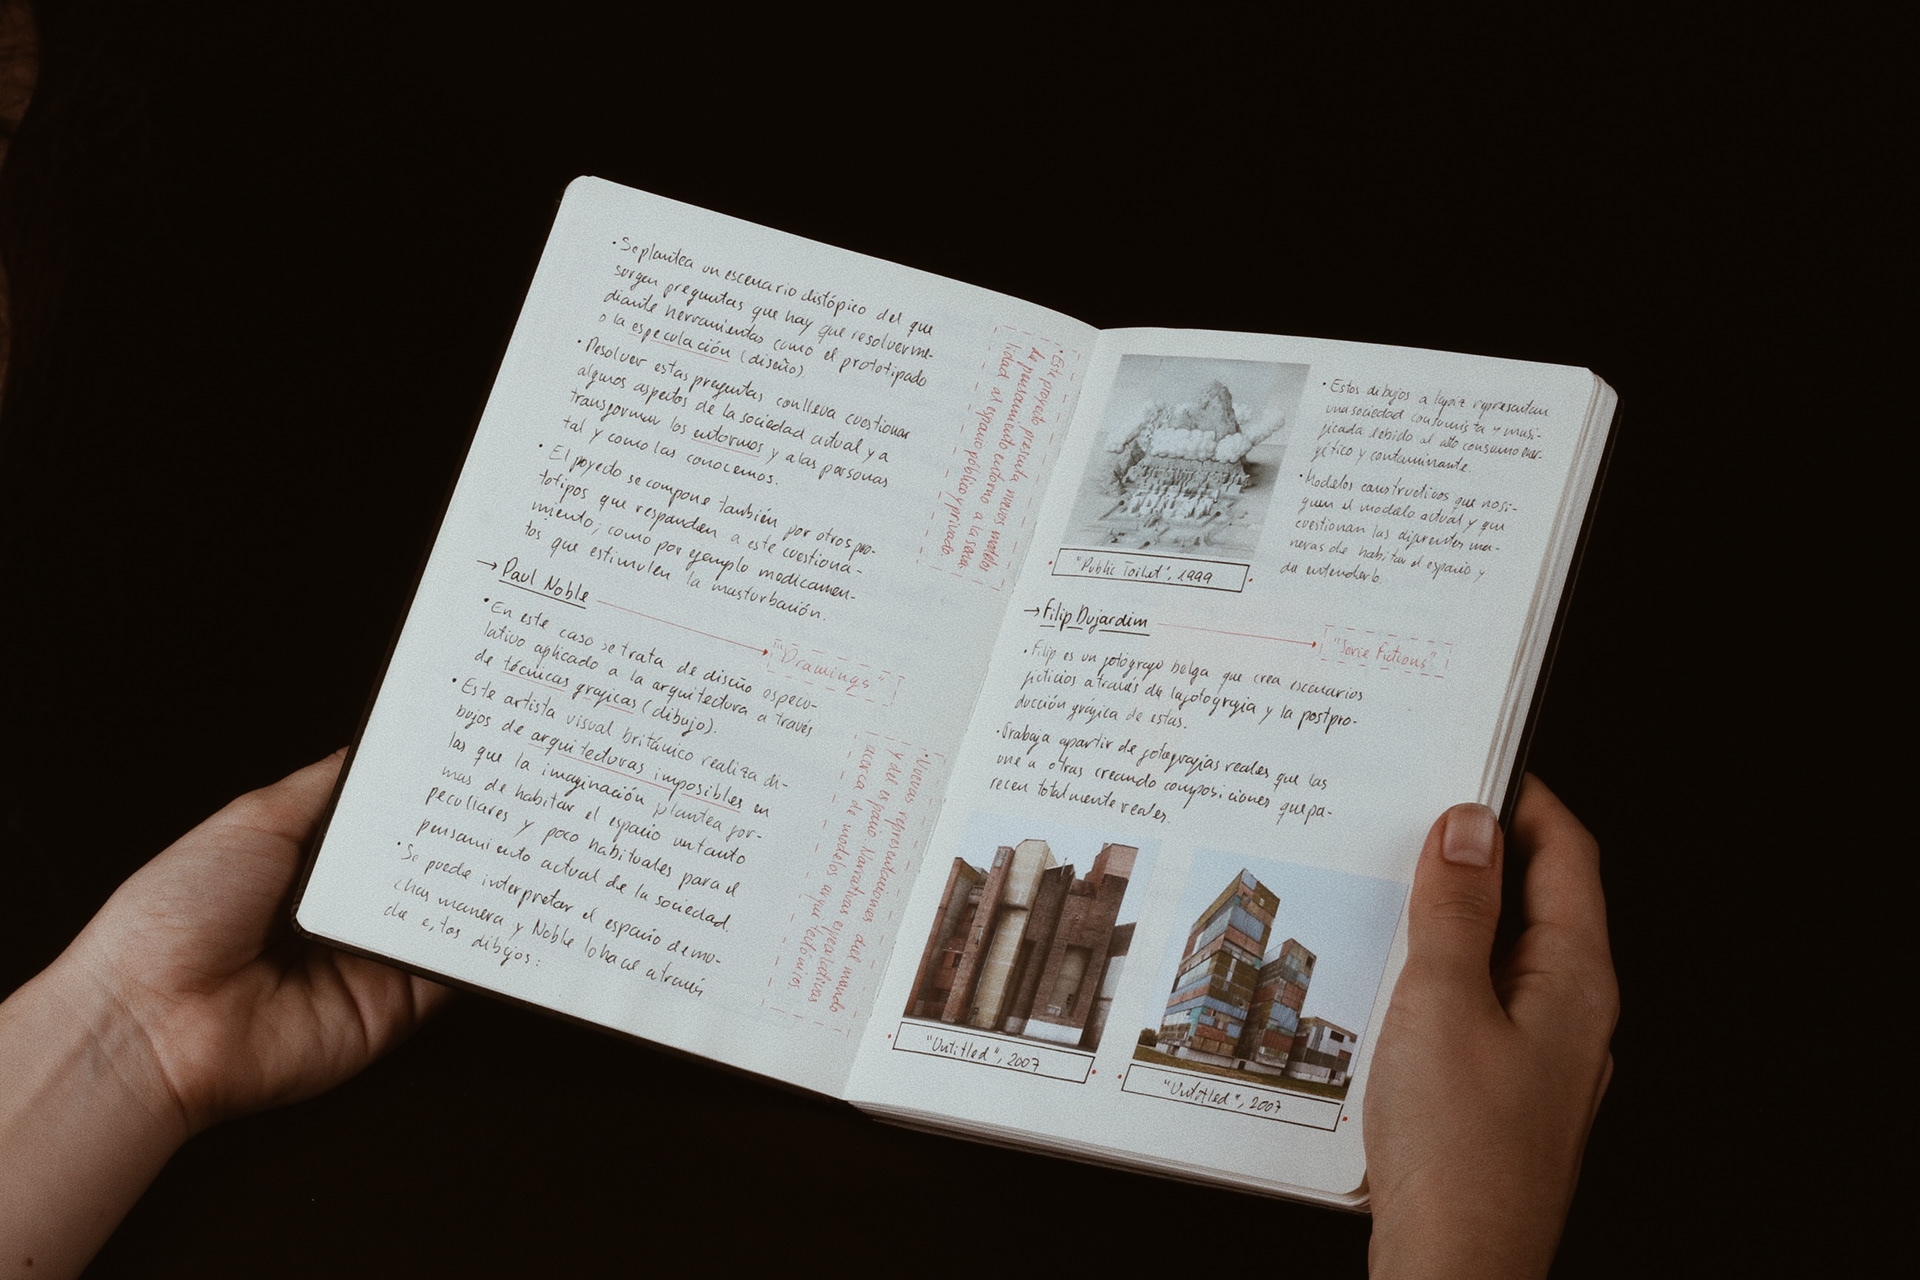 · Se plantea un escenario distópico del que
surgen preguntas que hay que resolver me-
diante herramientas como el prototipado
o la especulación (diseño).
· Resolver estas preguntas conlleva cuestionar
algunos aspectos de la sociedad actual y a
transformar los entornos y a las personas
tal y como las conocemos.
· El poyecto se compone también por otros pro-
totipos que responden a este cuestiona-
miento; como por ejemplo medicamen-
tos que estimulen la masturbación.
· Este proyecto presenta nuevos modelos
de pensamiento entorno a la sexua-
lidad al espacio público y privado.
→ Paul Noble
"Drawings"
· En este caso se trata de diseño especu-
lativo aplicado a la arquitectura a través
de técnicas gráficas (dibujo).
· Este artista visual británico realiza di-
bujos de arquitecturas imposibles en
las que la imaginación plantea for-
mas de habitar el espacio un tanto
peculiares y poco habituales para el
pensamiento actual de la sociedad.
· Se puede interpretar el espacio de mu-
chas manera y Noble lo hace a través
de estos dibujos:
· Nuevas representaciones del mundo
y del espacio. Narrativas especulativas
acerca de modelos arquitectónicos
"Public Toilet", 1999
· Estos dibujos a lapiz representan
una sociedad consumista y masi-
ficada debido al alto consumo ener-
gético y contaminante.
· Modelos constructivos que no si-
guen el modelo actual y que
cuestionan las diferentes ma-
neras de habitar el espacio y
de entenderlo.
→ Filip Dujardim
"Serie Fictions"
· Filip es un fotógrafo belga que crea escenarios
ficticios a través de la fotografía y la postpro-
ducción gráfica de estas.
· Trabaja apartir de fotografías reales que las
une a otras creando composiciones que pa-
recen totalmente reales.
"Untitled", 2007
"Untitled", 2007